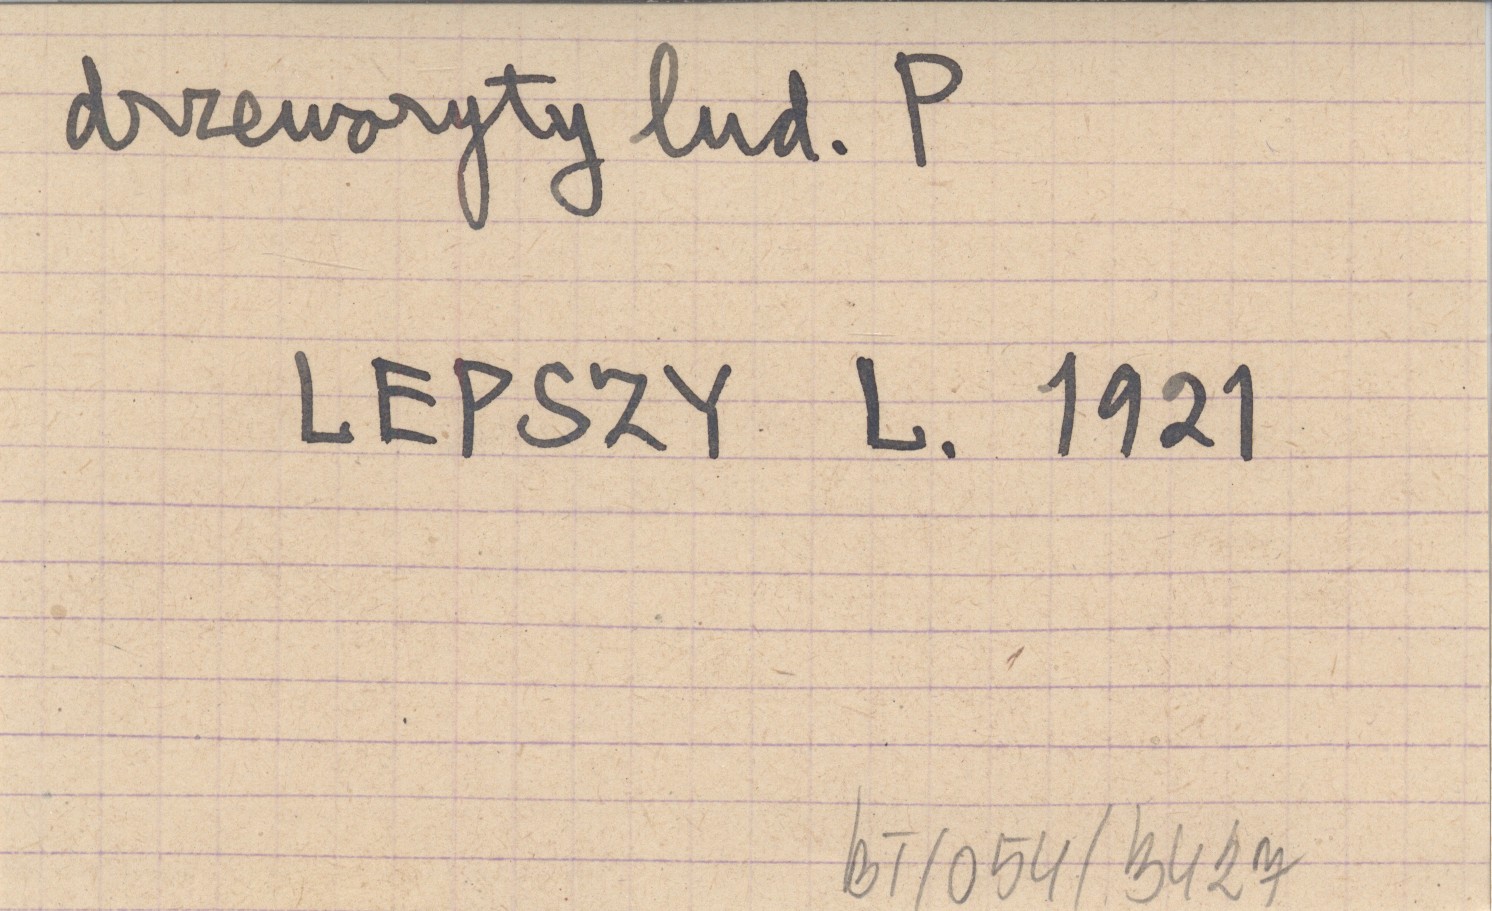 drzeworyty lud. P
LEPSZY L. 1921
BT/054/3427